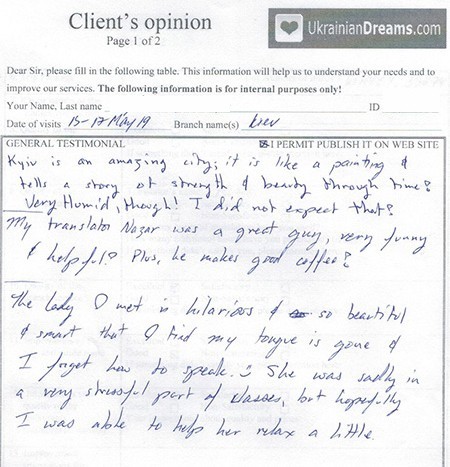 Client's opinion
Page 1 of 2
UkrainianDreams.com
Dear Sir, please fill in the following table. This information will help us to understand your needs and to
improve our services. The following information is for internal purposes only!
Your Name, Last name ID
Date of visits 13-17 May 19 Branch name(s) Kiev
GENERAL TESTIMONIAL I PERMIT PUBLISH IT ON WEB SITE
Kyiv is an amazing city; it is like a painting &
tells a story of strength & beauty through time!
Very Humid, though! I did not expect that!
My translator Nazar was a great guy, very funny
& helpful! Plus, he makes good coffee!
The lady I met is hilarious & so beautiful
& smart that I find my tongue is gone &
I forget how to speak. :) She was sadly in
a very stressful part of classes, but hopefully
I was able to help her relax a little.